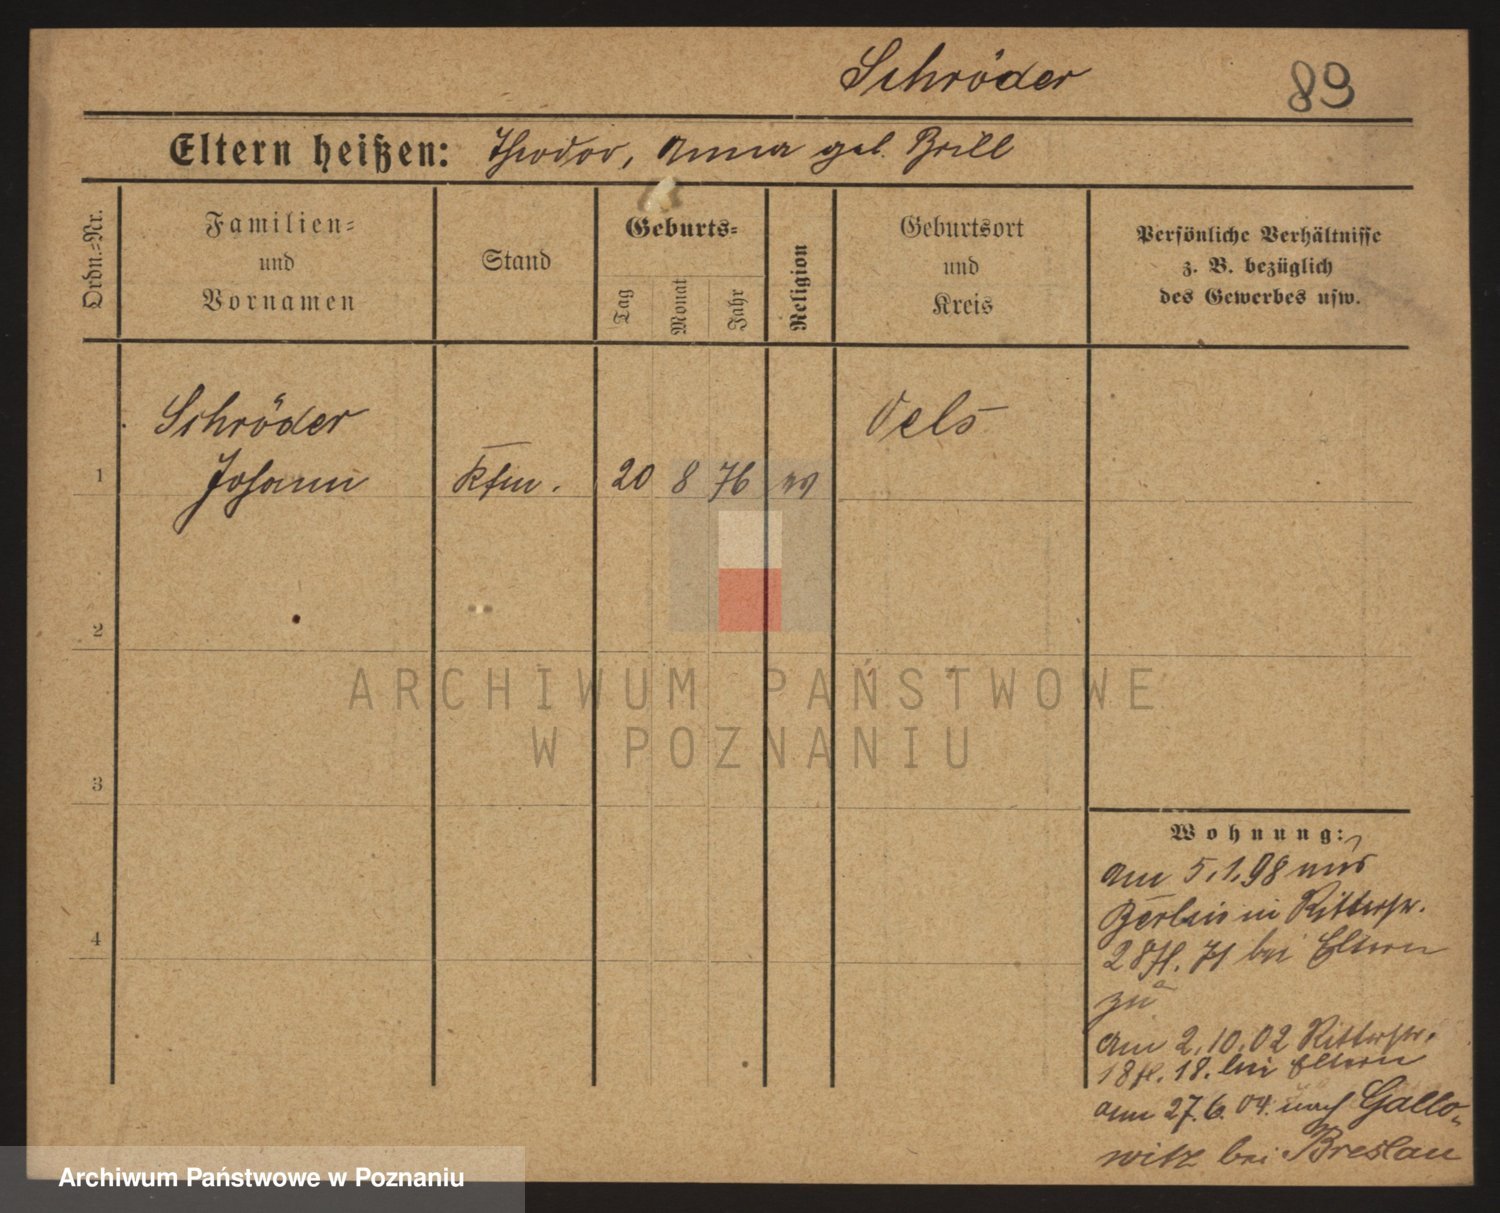 Schröder 89
Eltern heißen: Theodor, Anna geb. Brill
Ordn.=Nr.
Familien=
und
Vornamen
Stand
Geburts=
Tag
Monat
Jahr
Religion
Geburtsort
und
Kreis
Persönliche Verhältnisse
z. B. bezüglich
des Gewerbes usw.
Schröder
Oels
1 Johann Kfm. 20 8 76 ev
2
3
4
ARCHIWUM PAŃSTWOWE
W POZNANIU
Wohnung:
am 5.1.98 aus
Berlin in Ritterstr.
28 bei Eltern
zu
am 2.10.02 Ritterstr.
18 18. bei Eltern
am 27.6.04. nach Gallo-
witz bei Breslau
Archiwum Państwowe w Poznaniu